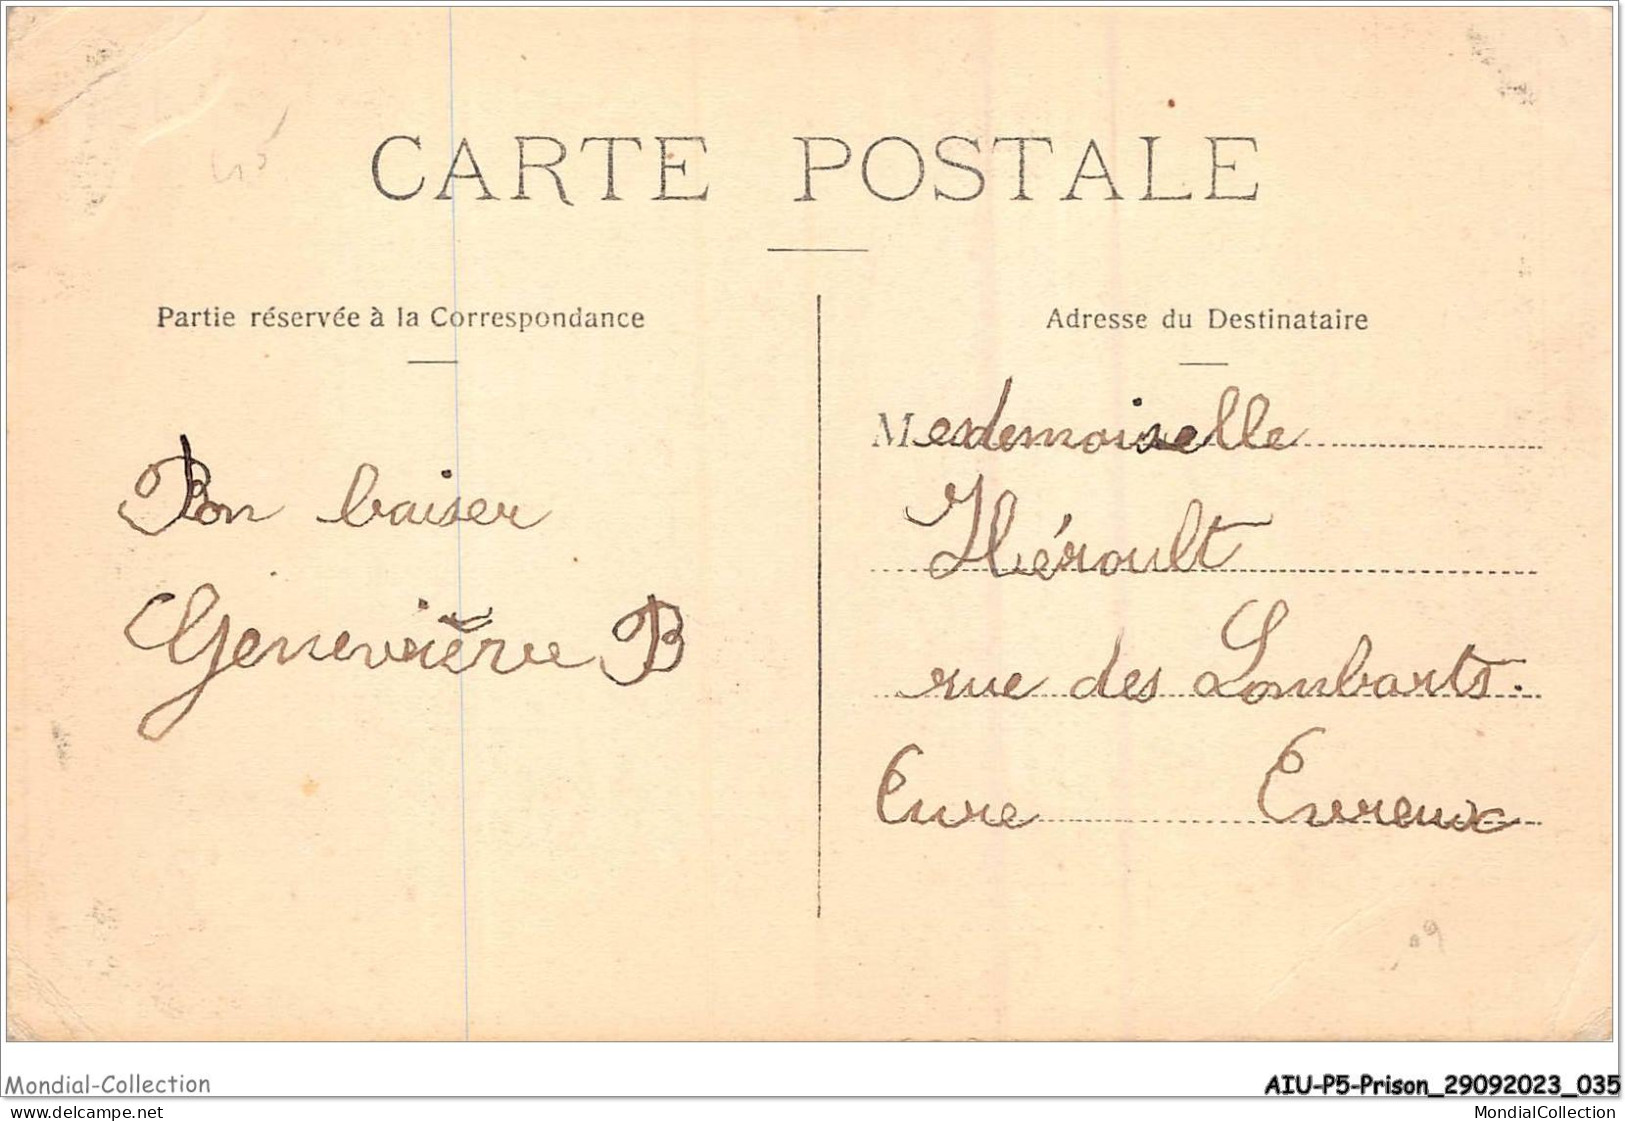 CARTE POSTALE
Partie réservée à la Correspondance
Bon baiser
Geneviève B
Adresse du Destinataire
Mesdemoiselle
Héroult
rue des Lombarts.
Eure Evreux
Mondial-Collection
AIU-P5-Prison_29092023_035
delcampe.net
MondialCollection